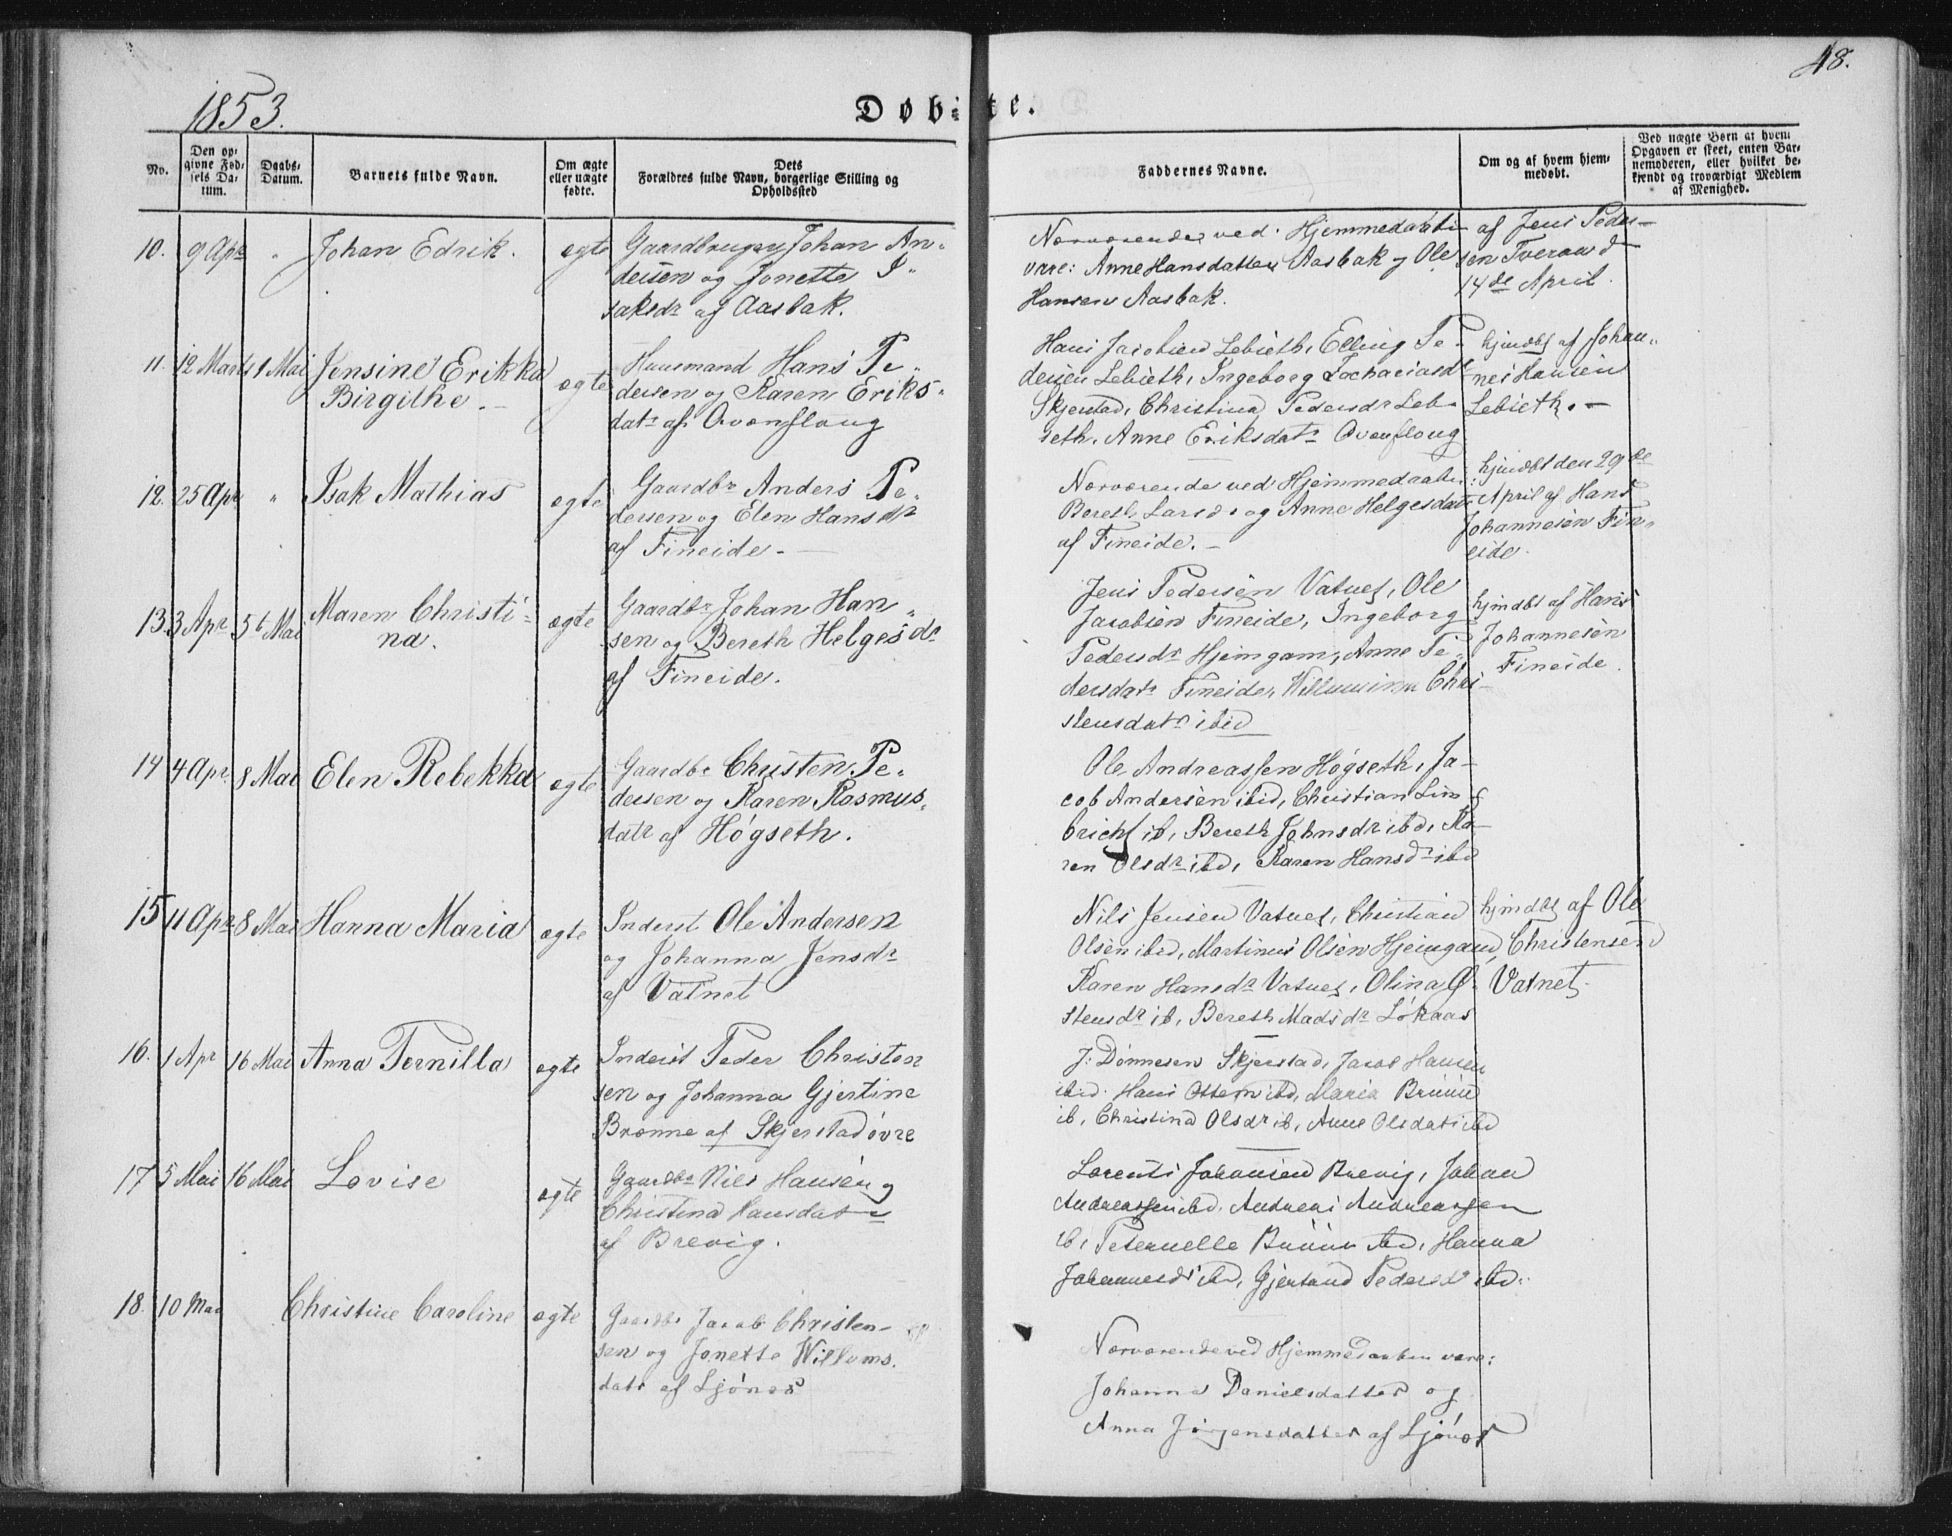 1853.
48.
Døbte.
No.
Den opgivne Fødsels Datum.
Daabs-Datum.
Barnets fulde Navn.
Om ægte eller uægte fødte.
Dets Forældres fulde Navn, borgerlige Stilling og Opholdssted
Faddernes Navne.
Om og af hvem hjemmedøbt.
Ved uægte Børn at hvem Opgaven er skeet, enten Barnemoderen, eller hvilket bekjendt og troværdigt Medlem af Menighed.
10. 9 Apr " Johan Edrik. ægte
Gaardbruger Johan An-
dersen og Jonette I-
saksdr af Aasbak.
Nærværende ved Hjemmedaaben
vare: Anne Hansdatter Aasbak og Ole
Hansen Aasbak.
af Jens Peder-
sen Tveraa d
14de April.
11. 12 Marts 1 Mai Jensine Erikka
Birgithe. ægte
Huusmand Hans Pe-
dersen og Karen Eriks-
datr af Øvenfloug
Hans Jacobsen Lebseth, Elling Pe-
dersen Lebseth, Ingeborg Zachariasdr
Skjerstad, Christina Pedersdr Leb-
seth, Anne Eriksdatr Ovenfloug
hjmdbt af Johan-
nes Hansen
Lebseth.
12. 25 Apr " Isak Mathias ægte
Gaardbr Anders Pe-
dersen og Elen Hansdr
af Fineide
Nærværende ved Hjemmedaaben:
Bereth Larsd. og Anne Helgesdatr
af Fineide.
hjmdbt den 29de
April af Hans
Johannesen Fin-
eide.
13. 3 Apr 5t Mai Maren Christi-
na. ægte
Gaardbr Johan Han-
sen og Bereth Helgesdr
af Fineide.
Jens Pedersen Vatnet, Ole
Jacobsen Fineide, Ingeborg
Pedersdr Hjemgam, Anne Pe-
dersdatr Fineide, Willumina Chri-
stensdatr ibid
hjmdbt af Hans
Johannesen
Fineide.
14 4 Apr. 8 Mai Elen Rebekka ægte
Gaardbr Christen Pe-
dersen og Karen Rasmus-
datr af Høgseth.
Ole Andreassen Høgseth, Ja-
cob Andersen ibid, Christian Lim-
brich ib, Bereth Johnsdr ibd, Ka-
ren Olsdr ibd, Karen Hansdr ibd
15 11 Apr 8 Mai Hanna Maria ægte
Inderst Ole Andersen
og Johanna Jensdr
af Vatnet
Nils Jensen Vatnet, Christian
Olsen ibid, Martinus Olsen Hjemgam,
Karen Hansdr Vatnet, Olina Ø-
stensdr ib, Bereth Madsdr Løkaas
hjmdbt af Ole
Christensen
Vatnet.
16. 1 Apr 16 Mai Anna Pernilla ægte
Inderst Peder Christen
sen og Johanna Gjertine
Brønne af Skjerstad øvre
J. Dønnesen Skjerstad, Jacob Hansen
ibid. Hans Ottesen ibd, Maria Bruun
ib, Christina Olsdr ib, Anne Olsdatr ibd
17 5 Mai 16 Mai Lovise ægte
Gaardbr Nils Hansen og
Christina Hansdatr
af Brevig.
Lorents Johansen Brevig, Johan
Andreassen ibd, Andreas Andreassen
ib, Peternelle Bruun ibd, Hanna
Johannesdr ibd, Gjertrud Pedersdr ibd.
18. 10 Mai Christine Caroline ægte
Gaardbr Jacob Christen-
sen og Jonette Willums-
datr af Ljønes
Nærværende ved Hjemmedaaben vare:
Johanna Danielsdatter og
Anna Jørgensdatter af Ljønes